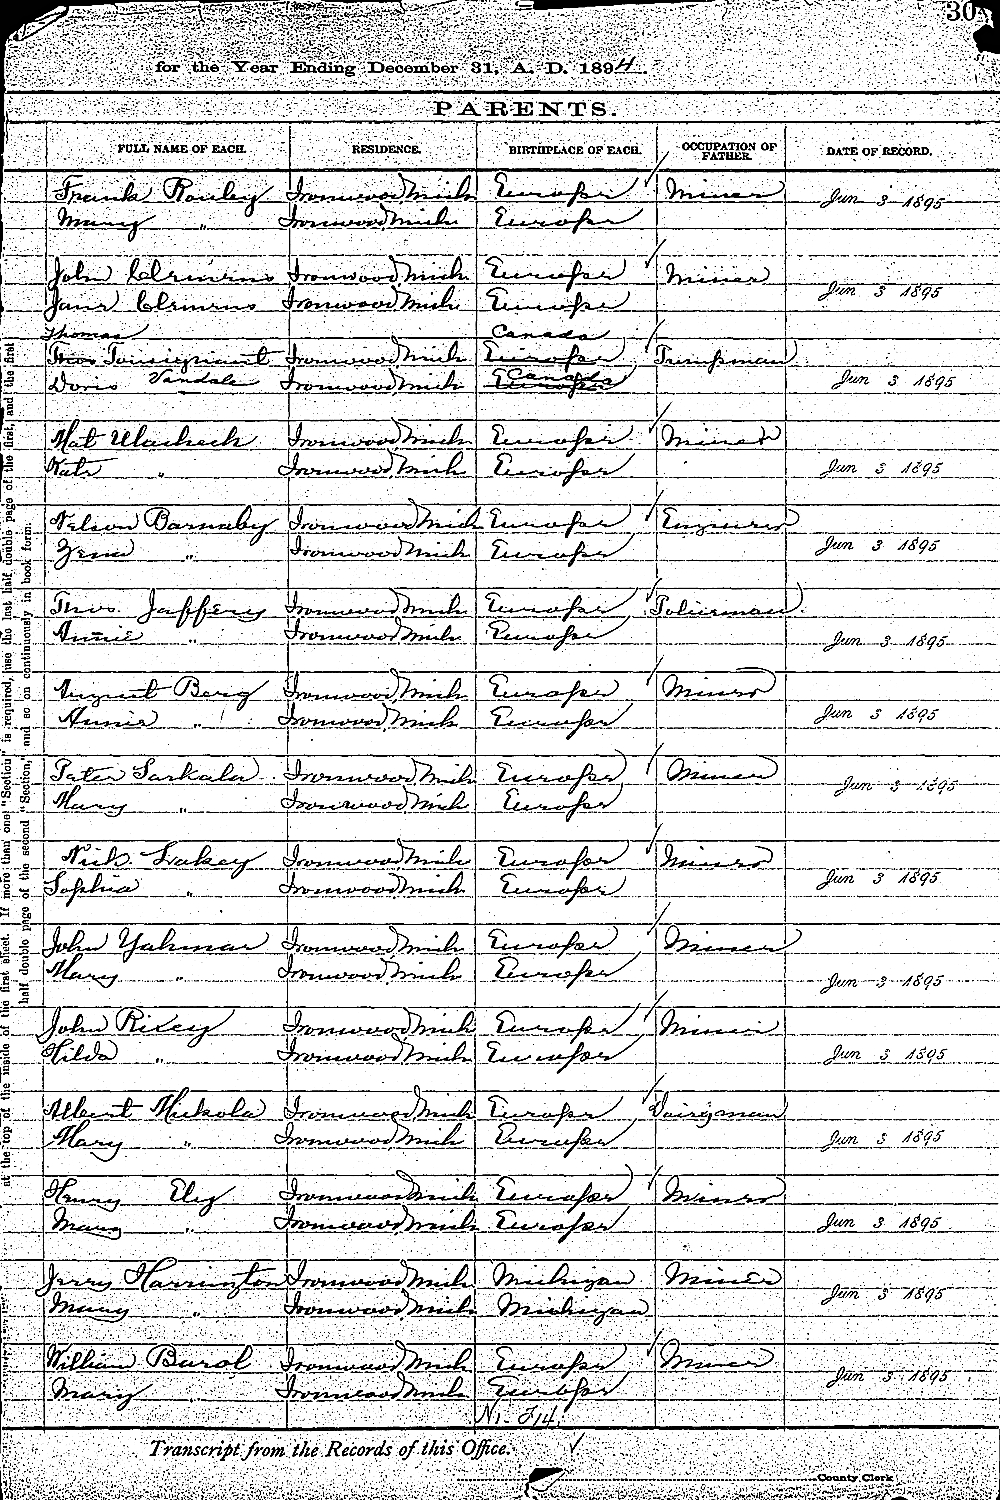 30
for the Year Ending December 31, A. D. 1894.
PARENTS.
FULL NAME OF EACH. RESIDENCE. BIRTHPLACE OF EACH. OCCUPATION OF FATHER. DATE OF RECORD.
Frank Rouley Ironwood Mich Europe Miner Jun 3 1895
Mary " Ironwood Mich Europe
John Clemens Ironwood Mich Europe Miner
Jane Clemens Ironwood Mich Europe Jun 3 1895
Thomas Canada
Thos Tousignant Ironwood Mich Europe Pumpman
Doris Vandale Ironwood Mich Europe Canada Jun 3 1895
Mat Ironwood Mich Europe Miner
Kate " Ironwood Mich Europe Jun 3 1895
Nelson Barnaby Ironwood Mich Europe Engineer
" Ironwood Mich Europe Jun 3 1895
Thos. Jaffery Ironwood Mich Europe Policeman
Annie " Ironwood Mich Europe Jun 3 1895
August Berg Ironwood Mich Europe Miner
Annie " Ironwood Mich Europe Jun 3 1895
Peter Ironwood Mich Europe Miner Jun 3 1895
Mary " Ironwood Mich Europe
Nick Ironwood Mich Europe Miner
Sophia " Ironwood Mich Europe Jun 3 1895
John Yahmar Ironwood Mich Europe Miner
Mary " Ironwood Mich Europe Jun 3 1895
John Ironwood Mich Europe Miner
Hilda " Ironwood Mich Europe Jun 3 1895
Albert Mukola Ironwood Mich Europe Dairyman
Mary " Ironwood Mich Europe Jun 3 1895
Henry Ely Ironwood Mich Europe Miner
Mary " Ironwood Mich Europe Jun 3 1895
Jerry Harrington Ironwood Mich Michigan Miner
Mary " Ironwood Mich Michigan Jun 3 1895
William Burol Ironwood Mich Europe Miner
Mary Ironwood Mich Europe Jun 3 1895
Transcript from the Records of this Office.
County Clerk
at the top of the inside of the first sheet. If more than one "Section" is required, use the last half double page of the first, and the first
half double page of the second "Section," and so on continuously in book form.